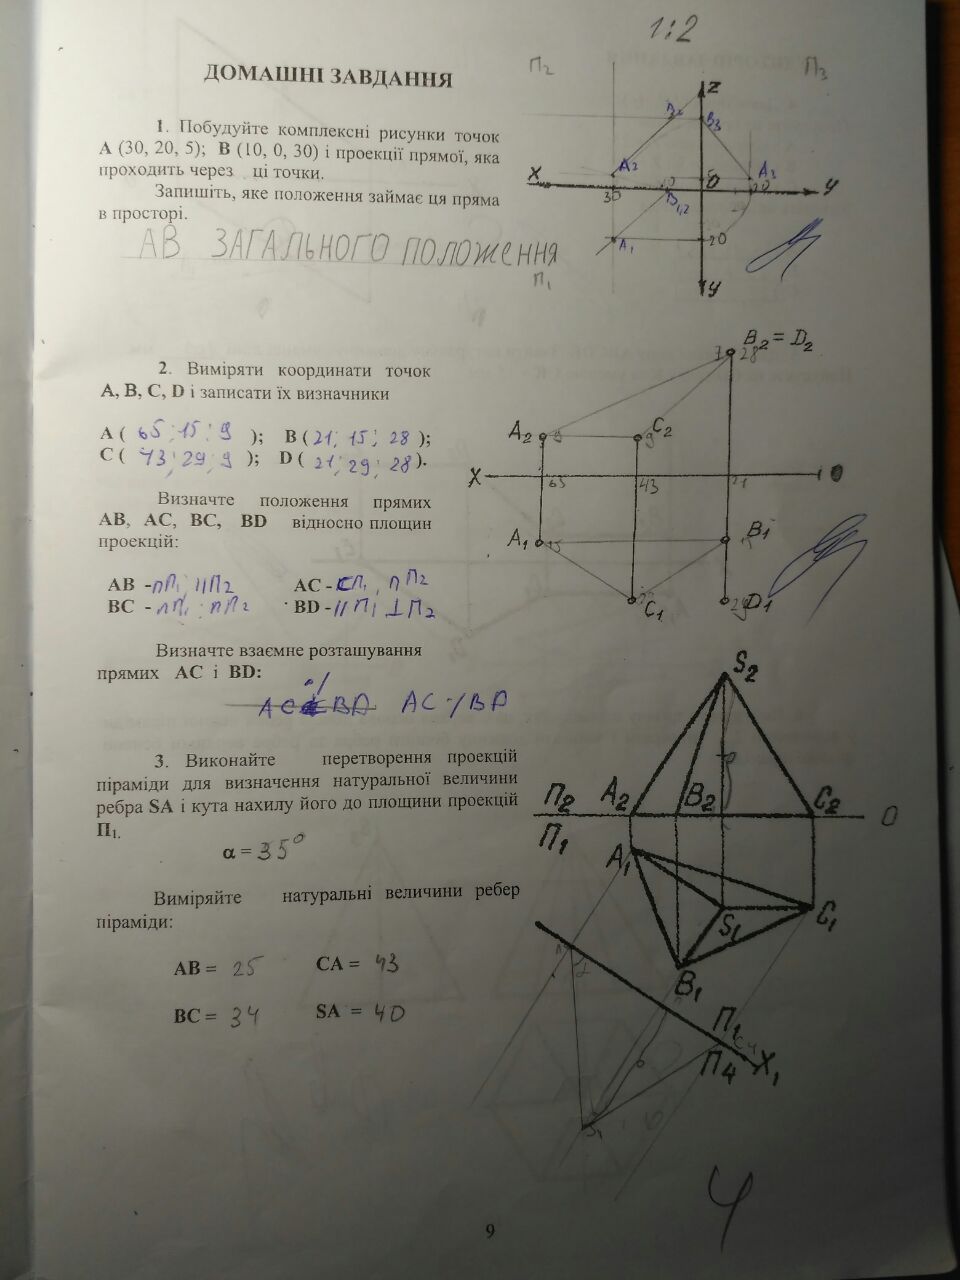 1:2
ДОМАШНІ ЗАВДАННЯ
1. Побудуйте комплексні рисунки точок
А (30, 20, 5); В (10, 0, 30) і проекції прямої, яка
проходить через ці точки.
Запишіть, яке положення займає ця пряма
в просторі.
АВ ЗАГАЛЬНОГО ПОЛОЖЕННЯ
П2
П3
Z
B2
B3
A2
A3
X
30
10
O
20
У
B1,2
A1
20
У
П1
2. Виміряти координати точок
А, В, С, D і записати їх визначники
А ( 65; 15; 9 ); В ( 21; 15; 28 );
С ( 43; 29; 9 ); D ( 21; 29; 28 ).
Визначте положення прямих
АВ, АС, ВС, BD відносно площин
проекцій:
АВ - ∩П1, ||П2 АС - П1, ∩П2
ВС - ∩П1; ∩П2 BD - ||П1 ⊥П2
Визначте взаємне розташування
прямих АС і BD:
AC ∸ BD
B2 = D2
28
A2
9
C2
9
X
63
43
21
O
A1
15
B1
C1
D1
29
3. Виконайте перетворення проекцій
піраміди для визначення натуральної величини
ребра SA і кута нахилу його до площини проекцій
П1.
α = 35°
Виміряйте натуральні величини ребер
піраміди:
АВ = 25 СА = 43
ВС = 34 SA = 40
S2
П2
A2
B2
C2
O
П1
A1
S1
C1
B1
П1
П4
X1
4
9